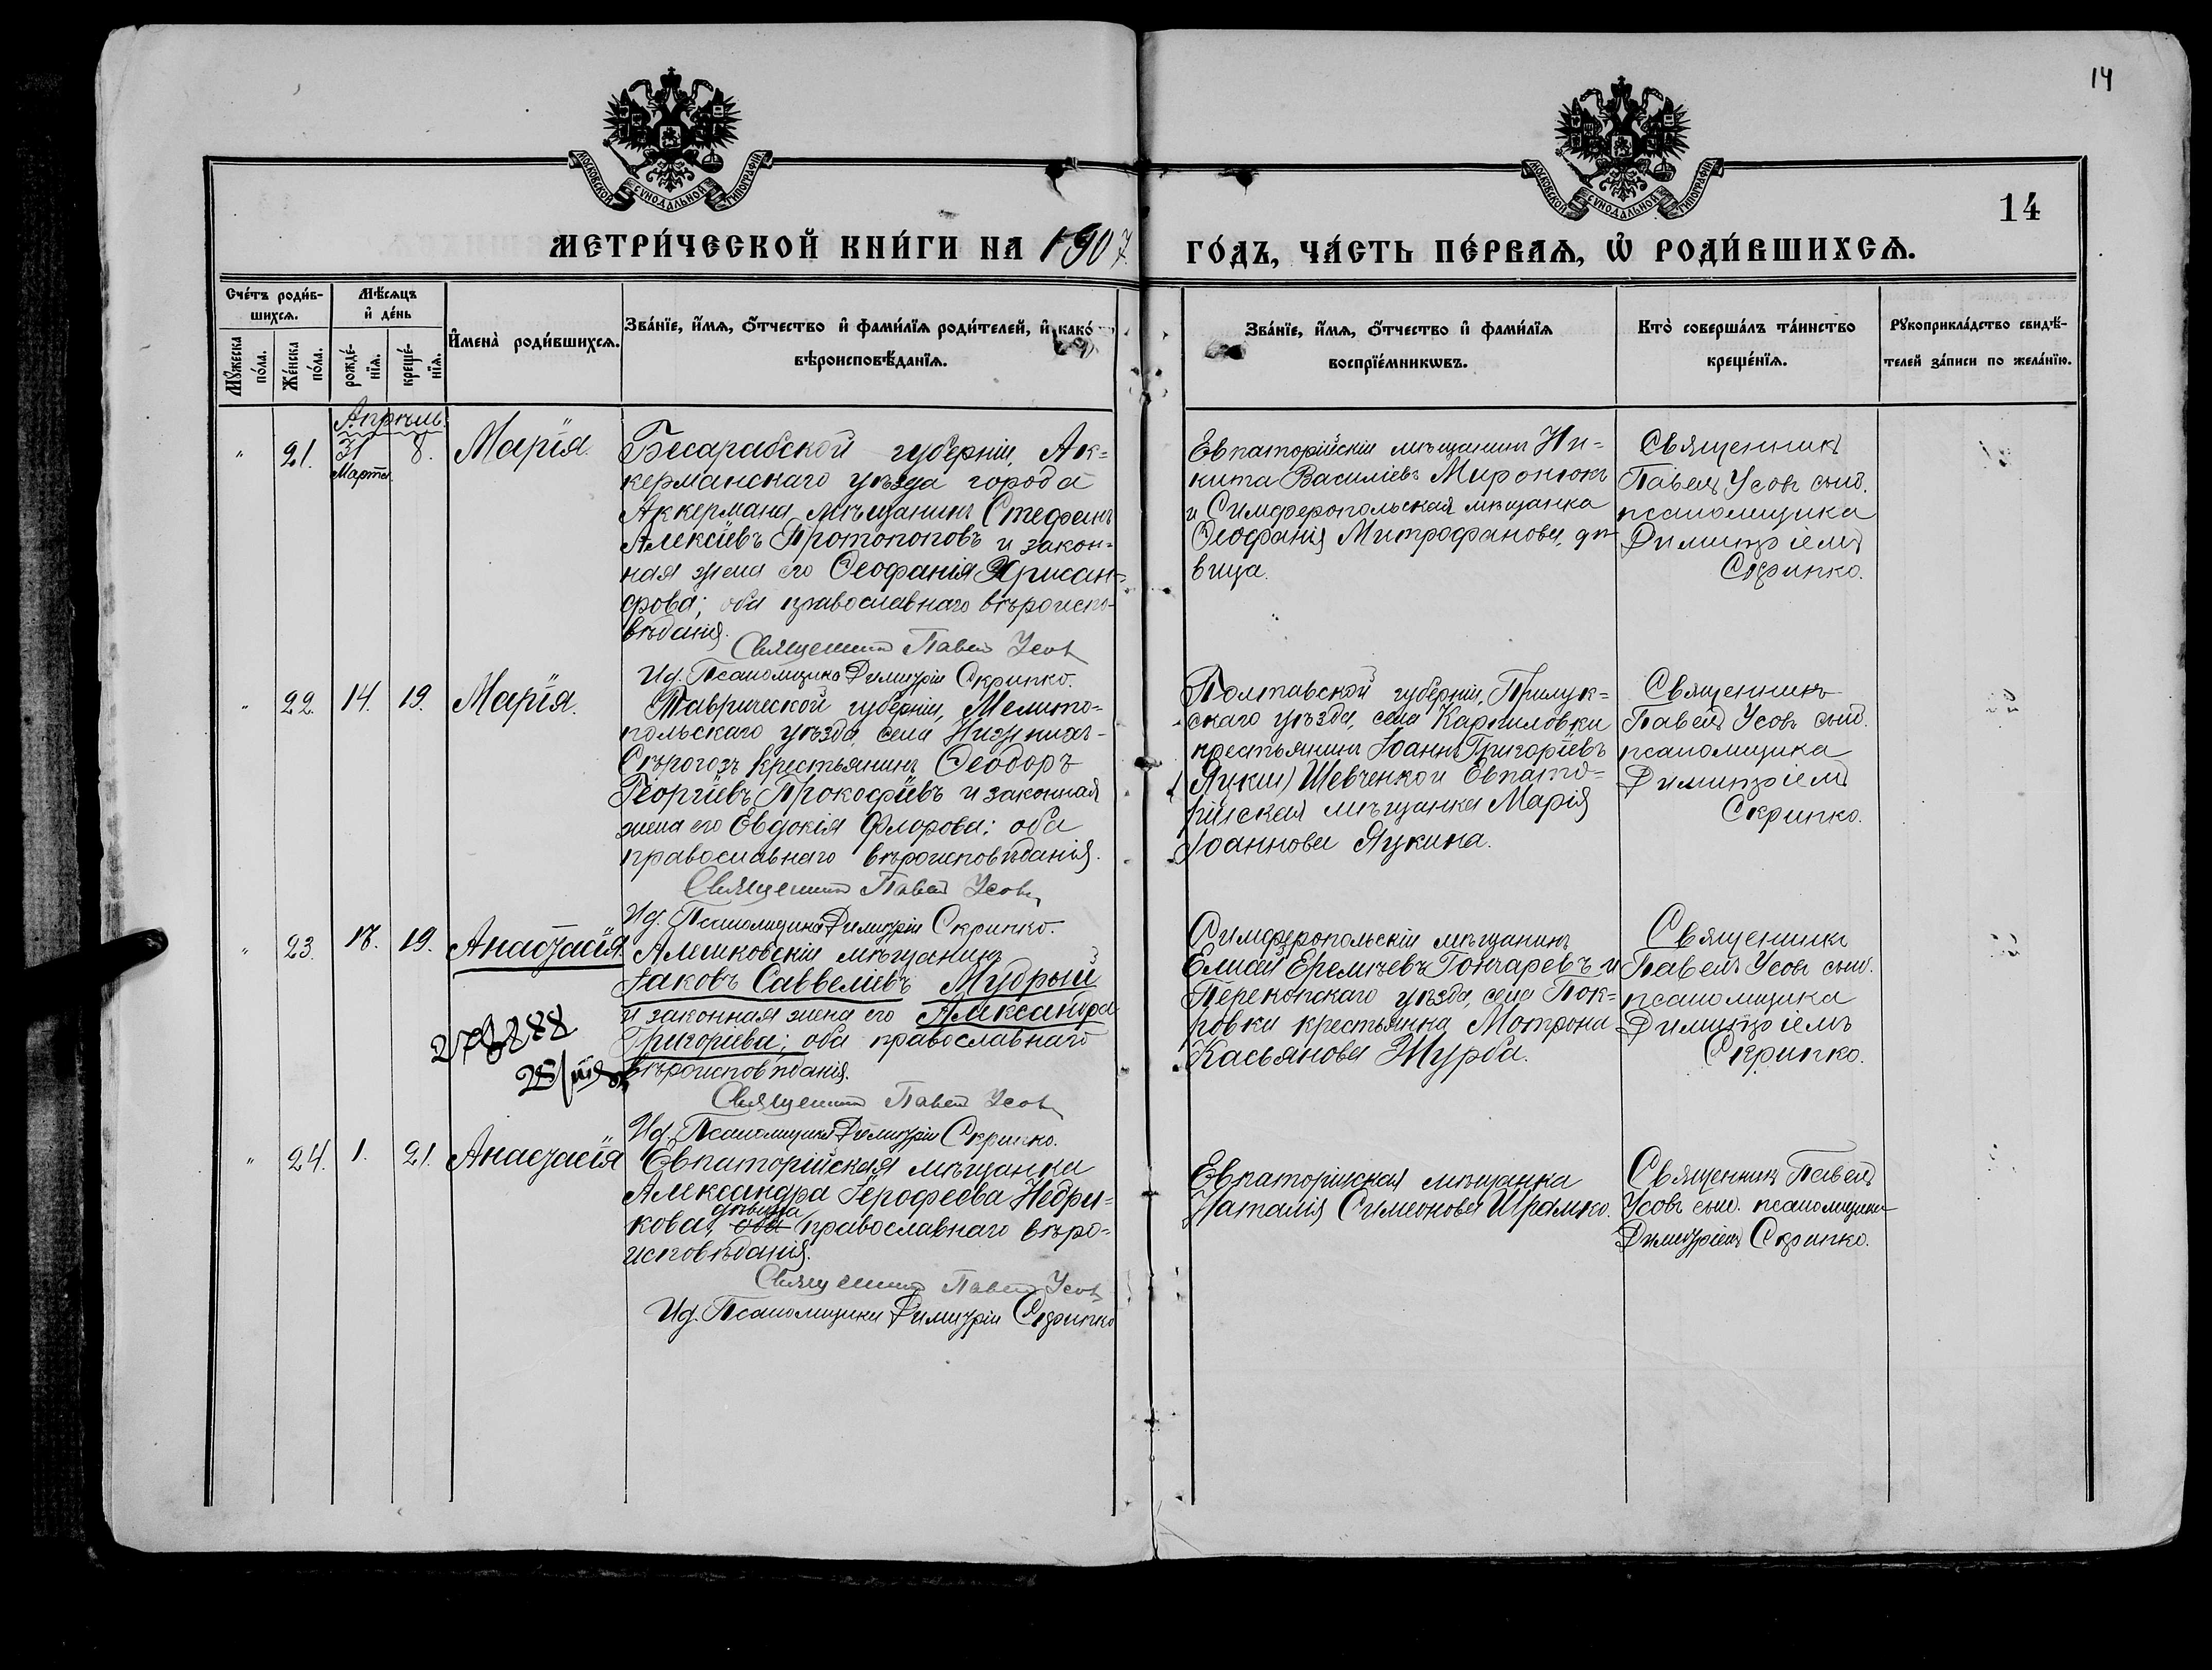 14
МОСКОВСКОЙ СУНОДАЛЬНОЙ ТИПОГРАФІИ
МОСКОВСКОЙ СУНОДАЛЬНОЙ ТИПОГРАФІИ
14
МЕТРИ́ЧЕСКОЙ КНИ́ГИ НА 1907
ГО́ДЪ, ЧА́СТЬ ПЕ́РВАѦ, Ѡ҆ РОДИ́ВШИХСѦ.
Сче́тъ роди́в-
шихсѧ.
Мꙋ́жеска по́ла.
Же́нска по́ла.
Мѣ́сѧцъ
и҆ де́нь
рожде́-
нїѧ.
креще́-
нїѧ.
И҆мена̀ роди́вшихсѧ.
Зва́нїе, и҆́мѧ, ѻ҆́тчество и҆ фами́лїѧ роди́телей, и҆ како́
вѣроисповѣ́данїѧ.
Зва́нїе, и҆́мѧ, ѻ҆́тчество и҆ фами́лїѧ
воспрїе́мникωвъ.
Кто̀ соверша́лъ та́инство
креще́нїѧ.
Рꙋкоприкла́дство свидѣ́-
телей за́писи по жела́нїю.
Апрѣль
" 21. 31 Марта. 8. Марія.
Бесарабской губерніи, Ак-
керманскаго уѣзда города
Аккермана мѣщанинъ Стефанъ
Алексіевъ Протопоповъ и закон-
ная жена его Ѳеофанія Хрисан-
фова; оба православнаго вѣроиспо-
вѣданія.
Священникъ Павелъ Усовъ
Ид. Псаломщика Димитрій Скрипко.
Евпаторійскій мѣщанинъ Ни-
кита Василіевъ Миронюкъ
и Симферопольская мѣщанка
Ѳеофанія Митрофанова, дѣ-
вица.
Священникъ
Павелъ Усовъ съ ид.
псаломщика
Димитріемъ
Скрипко.
" 22. 14. 19. Марія.
Таврической губерніи, Мелито-
польскаго уѣзда, села Нижнихъ-
Сѣрогозъ крестьянинъ Ѳеодоръ
Георгіевъ Прокофіевъ и законная
жена его Евдокія Флорова; оба
православнаго вѣроисповѣданія.
Священникъ Павелъ Усовъ
Ид. Псаломщика Димитрій Скрипко.
Полтавской губерніи, Прилук-
скаго уѣзда, села Кармиловки
крестьянинъ Іоаннъ Григоріевъ
Шевченко и Евпато-
рійская мѣщанка Марія
Іоаннова Яукина.
Священникъ
Павелъ Усовъ съ ид.
псаломщика
Димитріемъ
Скрипко.
" 23. 17. 19. Анастасія.
Алешковскій мѣщанинъ
Іаковъ Саввеліевъ Мудрый
и законная жена его Александра
Григоріева; оба православнаго
вѣроисповѣданія.
Священникъ Павелъ Усовъ
Ид. Псаломщика Димитрій Скрипко.
Симферопольскій мѣщанинъ
Елисей Еремѣевъ Гончаревъ и
Перекопскаго уѣзда, села Пок-
ровки крестьянка Матрона
Касьянова Журба.
Священникъ
Павелъ Усовъ съ ид.
псаломщика
Димитріемъ
Скрипко.
" 24. 1. 21. Анастасія
Евпаторійская мѣщанка
Александра Іерофеева Недри-
кова, дѣвица православнаго вѣро-
исповѣданія.
Священникъ Павелъ Усовъ
Ид. Псаломщика Димитрій Скрипко
Евпаторійская мѣщанка
Наталія Симеонова Шрамко.
Священникъ Павелъ
Усовъ съ ид. псаломщика
Димитріемъ Скрипко.